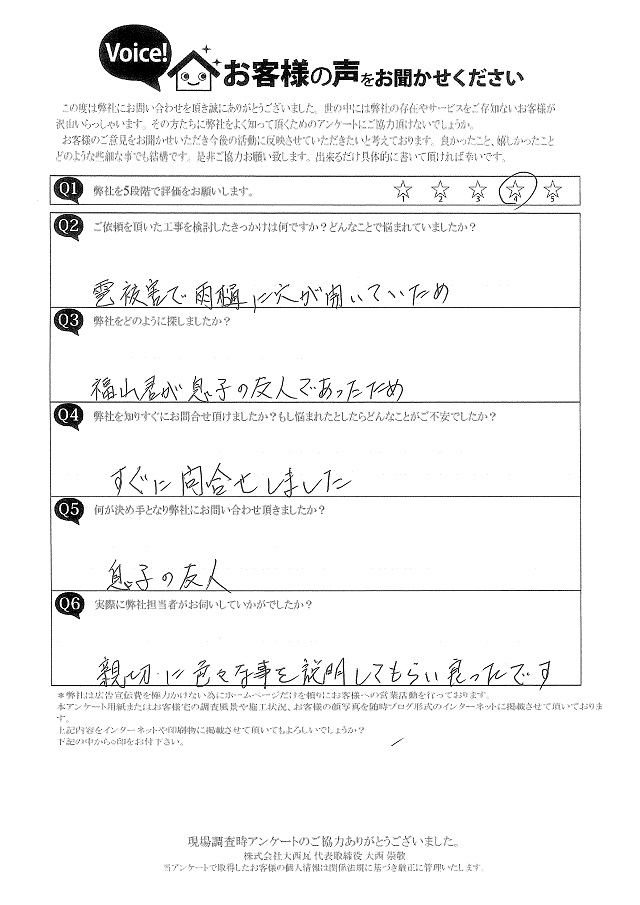 Voice!
お客様の声をお聞かせください
この度は弊社にお問い合わせを頂き誠にありがとうございました。世の中には弊社の存在やサービスをご存知ないお客様が
沢山いらっしゃいます。その方たちに弊社をよく知って頂くためのアンケートにご協力頂けないでしょうか。
お客様のご意見をお聞かせいただき今後の活動に反映させていただきたいと考えております。良かったこと、嬉しかったこと
どのような些細な事でも結構です。是非ご協力お願い致します。出来るだけ具体的に書いて頂ければ幸いです。
Q1 弊社を5段階で評価をお願いします。 ☆1 ☆2 ☆3 ☆4 ☆5
Q2 ご依頼を頂いた工事を検討したきっかけは何ですか？どんなことで悩まれていましたか？
雹被害で雨樋に穴が開いていため
Q3 弊社をどのように探しましたか？
福山君が息子の友人であったため
Q4 弊社を知りすぐにお問合せ頂けましたか？もし悩まれたとしたらどんなことがご不安でしたか？
すぐに問合せしました
Q5 何が決め手となり弊社にお問い合わせ頂きましたか？
息子の友人
Q6 実際に弊社担当者がお伺いしていかがでしたか？
親切に色々な事を説明してもらい良ったです
＊弊社は広告宣伝費を極力かけない為にホームページだけを頼りにお客様への営業活動を行っております。
本アンケート用紙またはお客様宅の調査風景や施工状況、お客様の顔写真を随時ブログ形式のインターネットに掲載させて頂いておりま
す。
上記内容をインターネットや印刷物に掲載させて頂いてもよろしいでしょうか？
下記の中から○印をお付下さい。
現場調査時アンケートのご協力ありがとうございました。
株式会社大西瓦 代表取締役 大西 崇敬
当アンケートで取得したお客様の個人情報は関係法規に基づき厳正に管理いたします。